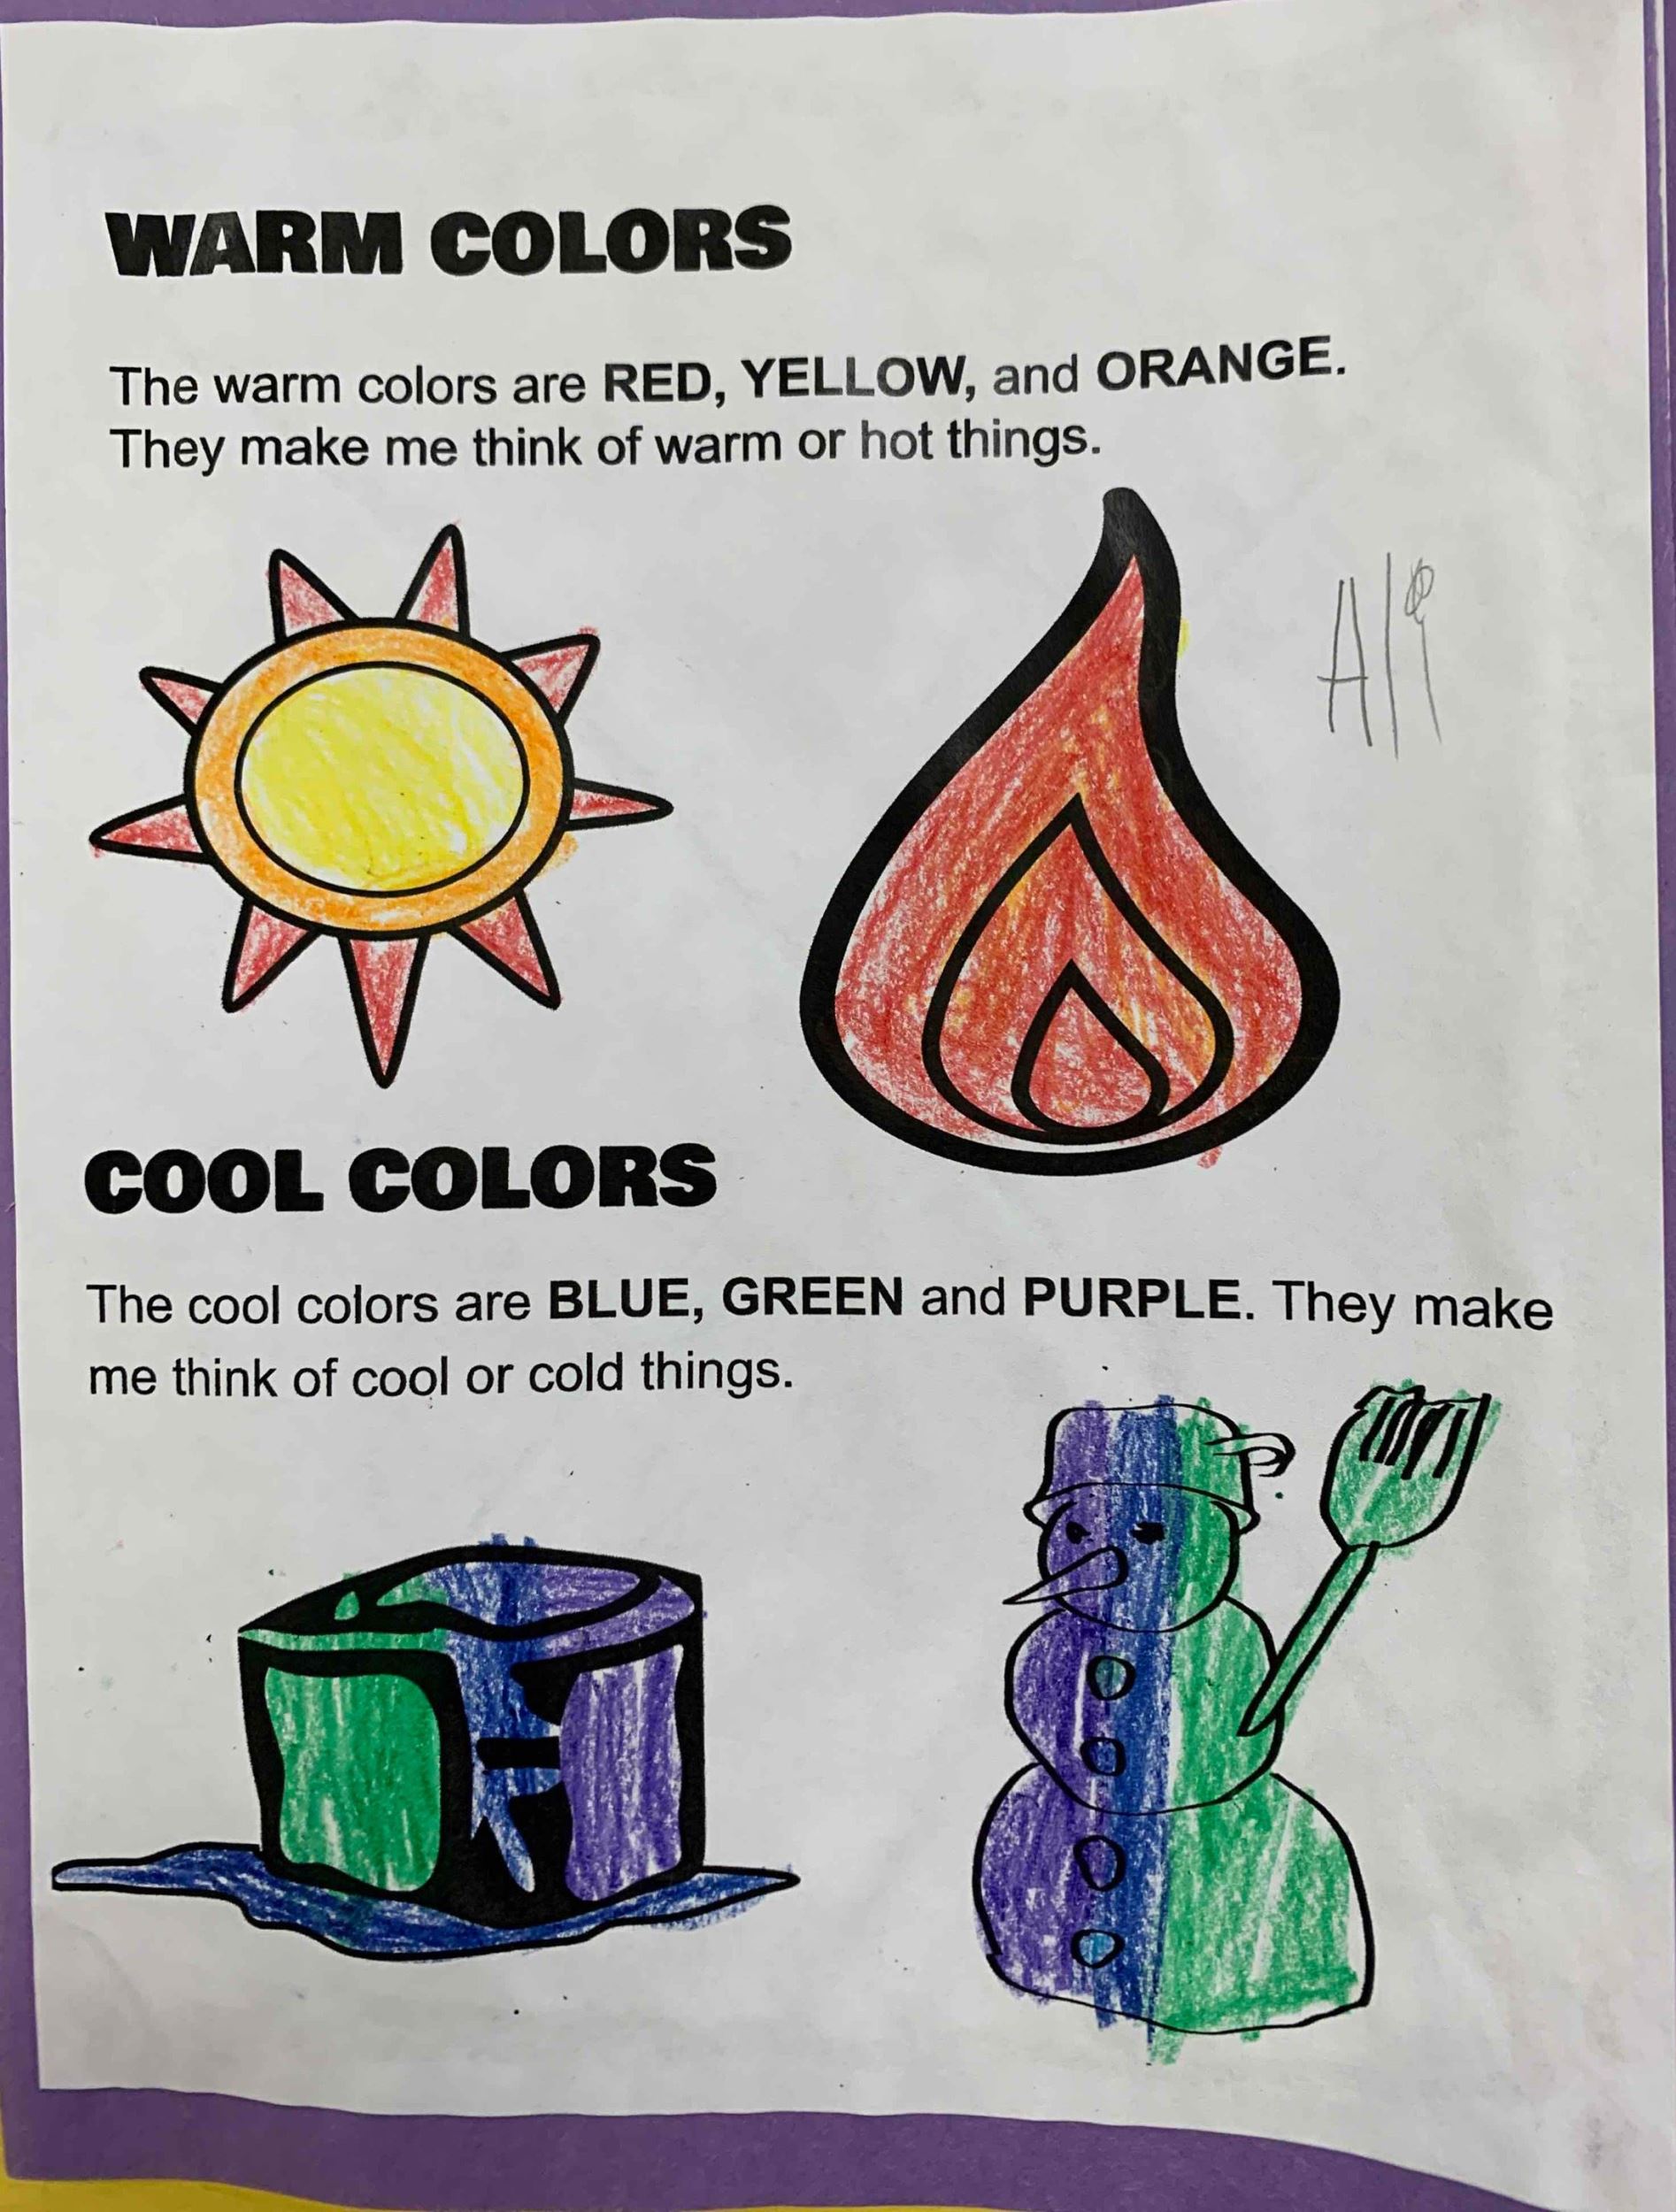 WARM COLORS
The warm colors are RED, YELLOW, and ORANGE.
They make me think of warm or hot things.
Ali
COOL COLORS
The cool colors are BLUE, GREEN and PURPLE. They make
me think of cool or cold things.